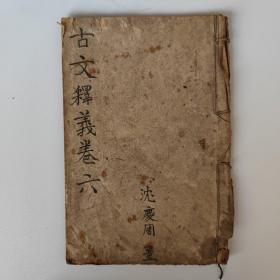 古文釋義卷六
沈慶周